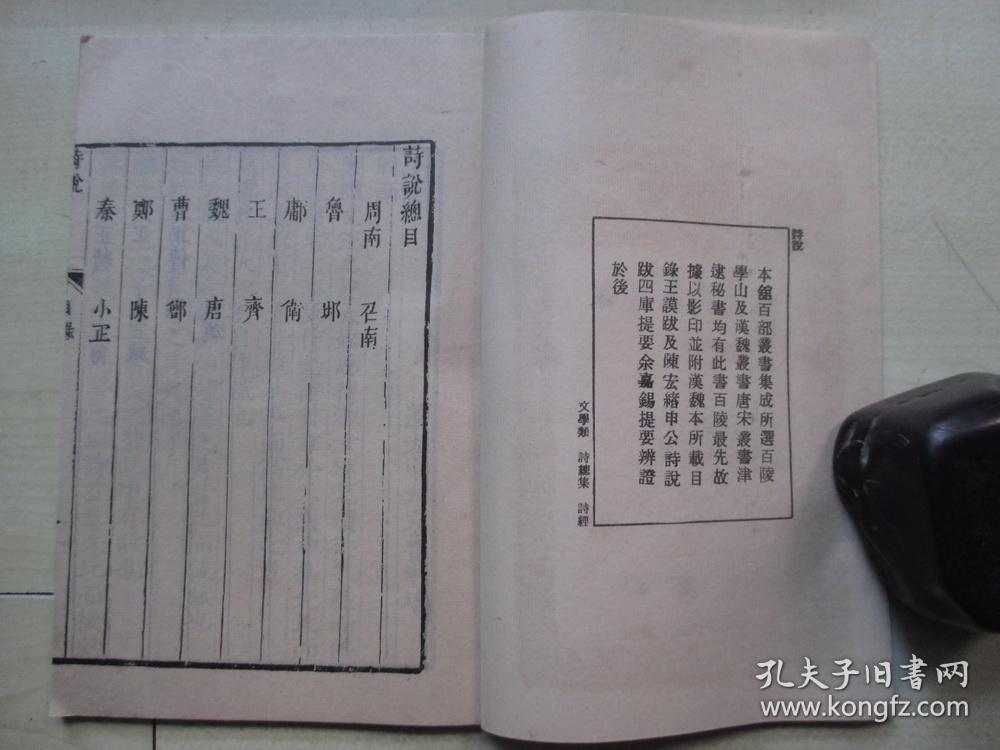 詩說
本館百部叢書集成所選百陵
學山及漢魏叢書唐宋叢書津
逮秘書均有此書百陵最先故
據以影印並附漢魏本所載目
錄王謨跋及陳宏緒申公詩說
跋四庫提要余嘉錫提要辨證
於後
文學類 詩總集 詩經
詩說總目
周南 召南
魯 邶
鄘 衛
王 齊
魏 唐
曹 鄶
鄭 陳
秦 小正
詩說 目錄
孔夫子旧书网
www.kongfz.com